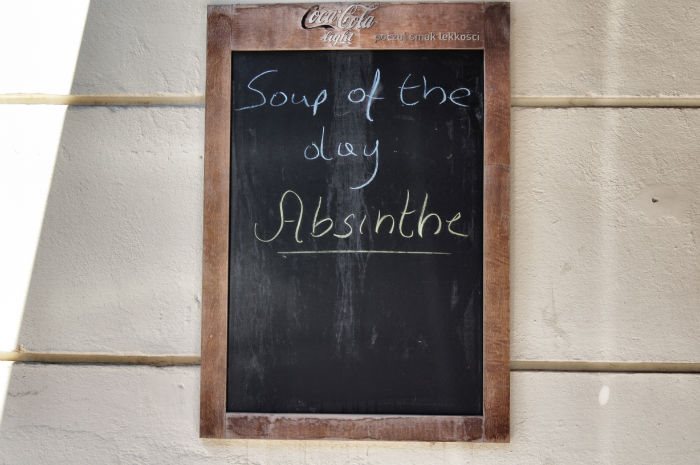 Coca-Cola
light
poczuj smak lekkości
Soup of the
day
Absinthe